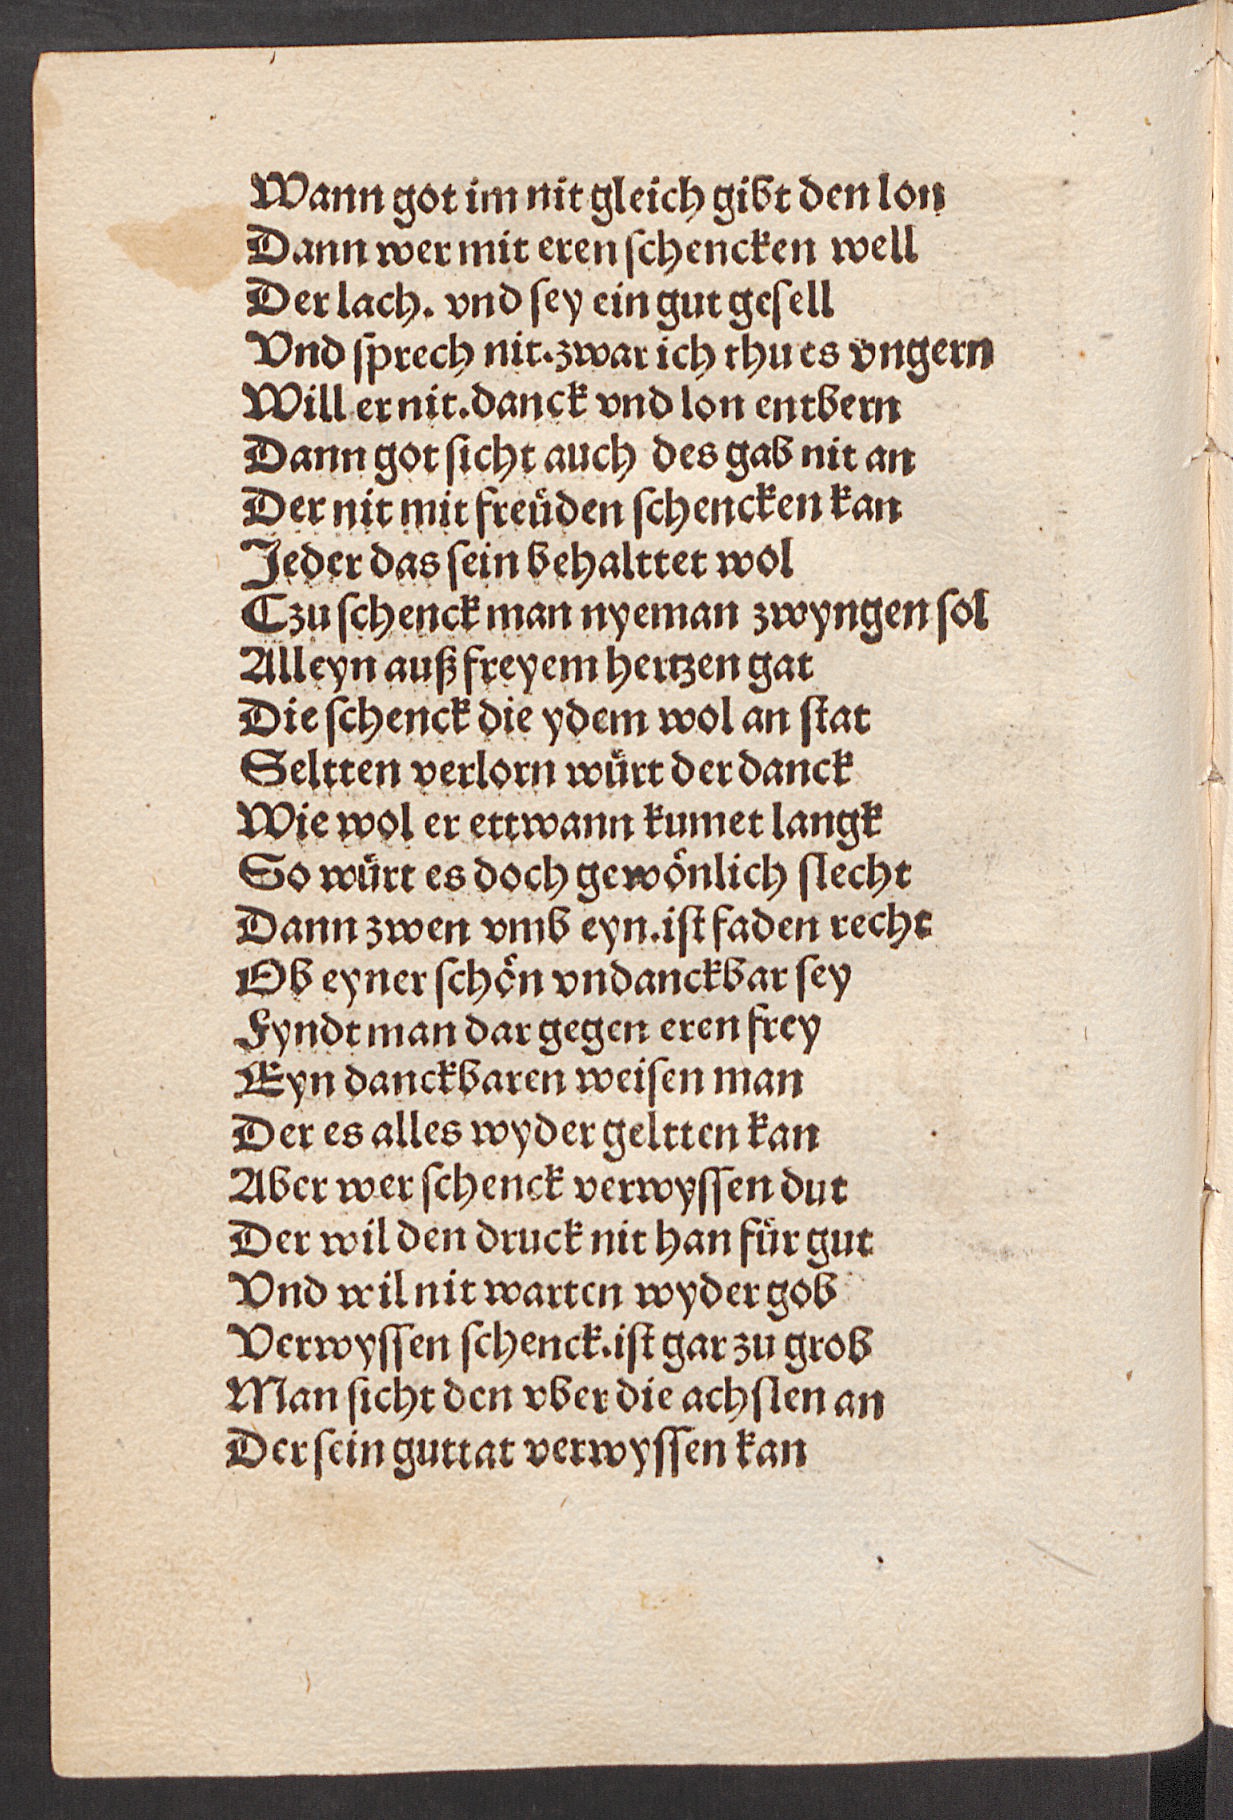 Wann got im nit gleich gibt den lon
Dann wer mit eren schencken well
Der lach. vnd sey ein gut gesell
Vnd sprech nit. zwar ich thu es vngern
Will er nit. danck vnd lon entbern
Dann got sicht auch des gab nit an
Der nit mit freüden schencken kan
Jeder das sein behalttet wol
Czu schenck man nyeman zwyngen sol
Alleyn auß freyem hertzen gat
Die schenck die ydem wol an stat
Seltten verlorn würt der danck
Wie wol er ettwann kumet langk
So würt es doch gewönlich slecht
Dann zwen vmb eyn. ist faden recht
Ob eyner schön vndanckbar sey
Fyndt man dar gegen eren frey
Eyn danckbaren weisen man
Der es alles wyder geltten kan
Aber wer schenck verwyssen dut
Der wil den druck nit han für gut
Vnd wil nit warten wyder gob
Verwyssen schenck. ist gar zu grob
Man sicht den vber die achslen an
Der sein guttat verwyssen kan